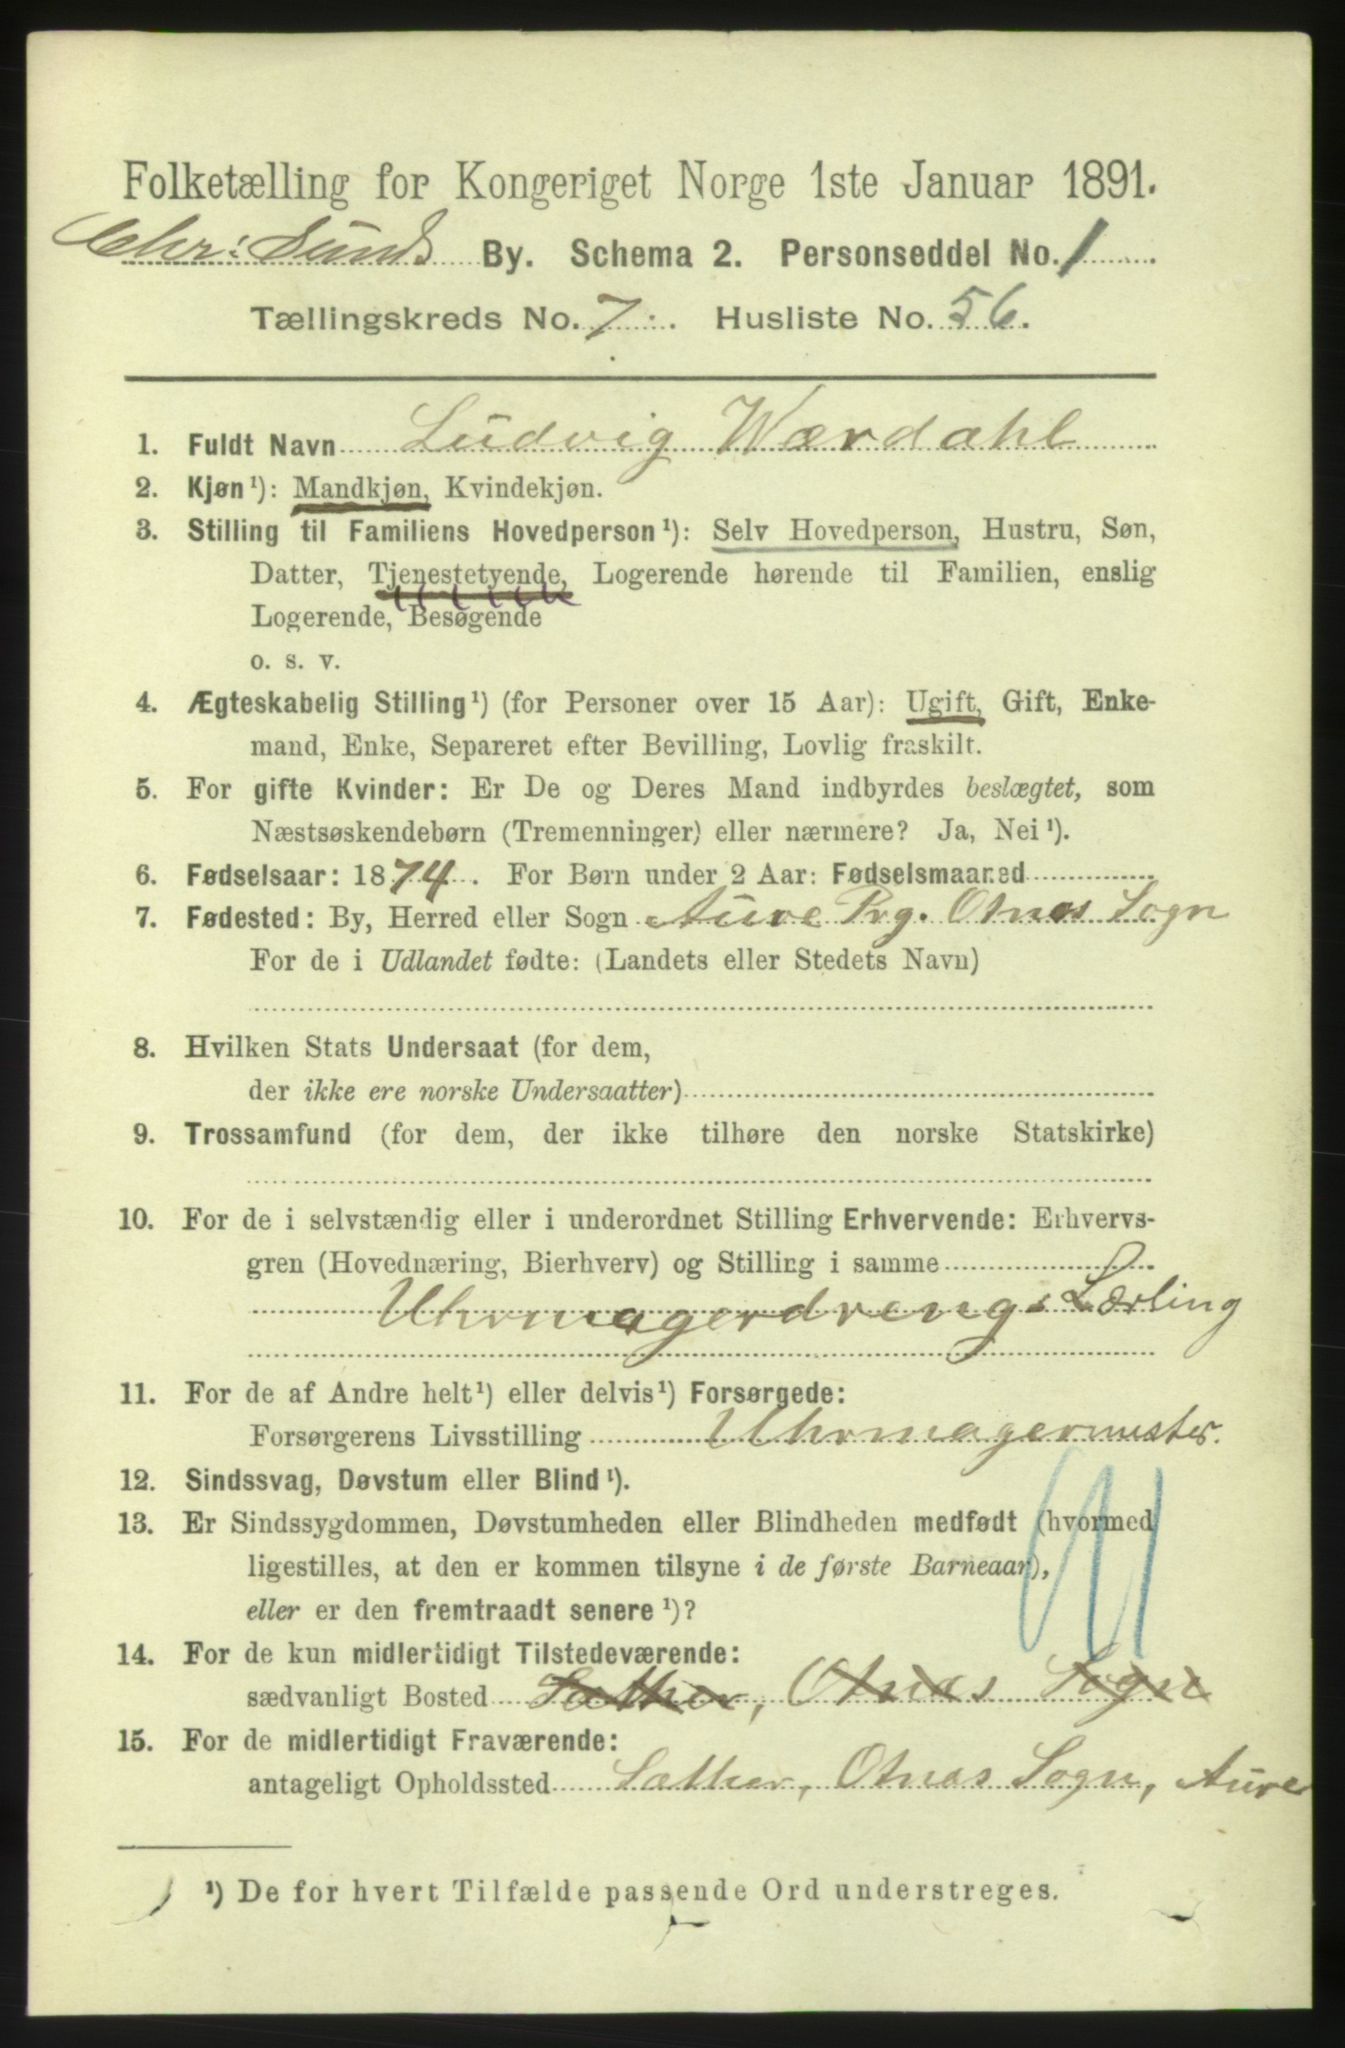 Folketælling for Kongeriget Norge 1ste Januar 1891.
Chr: Sunds By. Schema 2. Personseddel No. 1
Tællingskreds No. 7. Husliste No. 56.
1. Fuldt Navn Ludvig Wærdahl
2. Kjøn¹): Mandkjøn, Kvindekjøn.
3. Stilling til Familiens Hovedperson¹): Selv Hovedperson, Hustru, Søn,
Datter, Tjenestetyende, Logerende hørende til Familien, enslig
Logerende, Besøgende
o. s. v.
4. Ægteskabelig Stilling¹) (for Personer over 15 Aar): Ugift, Gift, Enke-
mand, Enke, Separeret efter Bevilling, Lovlig fraskilt.
5. For gifte Kvinder: Er De og Deres Mand indbyrdes beslægtet, som
Næstsøskendebørn (Tremenninger) eller nærmere? Ja, Nei¹).
6. Fødselsaar: 1874. For Børn under 2 Aar: Fødselsmaaned
7. Fødested: By, Herred eller Sogn Aure Prg. Otnes Sogn
For de i Udlandet fødte: (Landets eller Stedets Navn)
8. Hvilken Stats Undersaat (for dem,
der ikke ere norske Undersaatter)
9. Trossamfund (for dem, der ikke tilhøre den norske Statskirke)
10. For de i selvstændig eller i underordnet Stilling Erhvervende: Erhvervs-
gren (Hovednæring, Bierhverv) og Stilling i samme
Uhrmagerdreng Lærling
11. For de af Andre helt¹) eller delvis¹) Forsørgede:
Forsørgerens Livsstilling Uhrmagermester.
12. Sindssvag, Døvstum eller Blind¹).
13. Er Sindssygdommen, Døvstumheden eller Blindheden medfødt (hvormed
ligestilles, at den er kommen tilsyne i de første Barneaar),
eller er den fremtraadt senere¹)?
14. For de kun midlertidigt Tilstedeværende:
sædvanligt Bosted Sæther, Otnæs Sogn
15. For de midlertidigt Fraværende:
antageligt Opholdssted Sæther, Otnæs Sogn, Aure
¹) De for hvert Tilfælde passende Ord understreges.